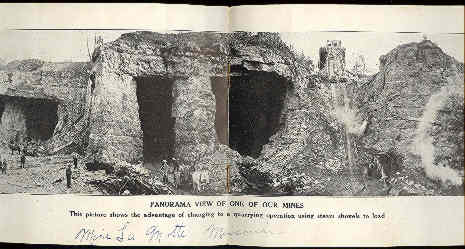 PANORAMA VIEW OF ONE OF OUR MINES
This picture shows the advantage of changing to a quarrying operation using steam shovels to load
Mine La Motte Missouri